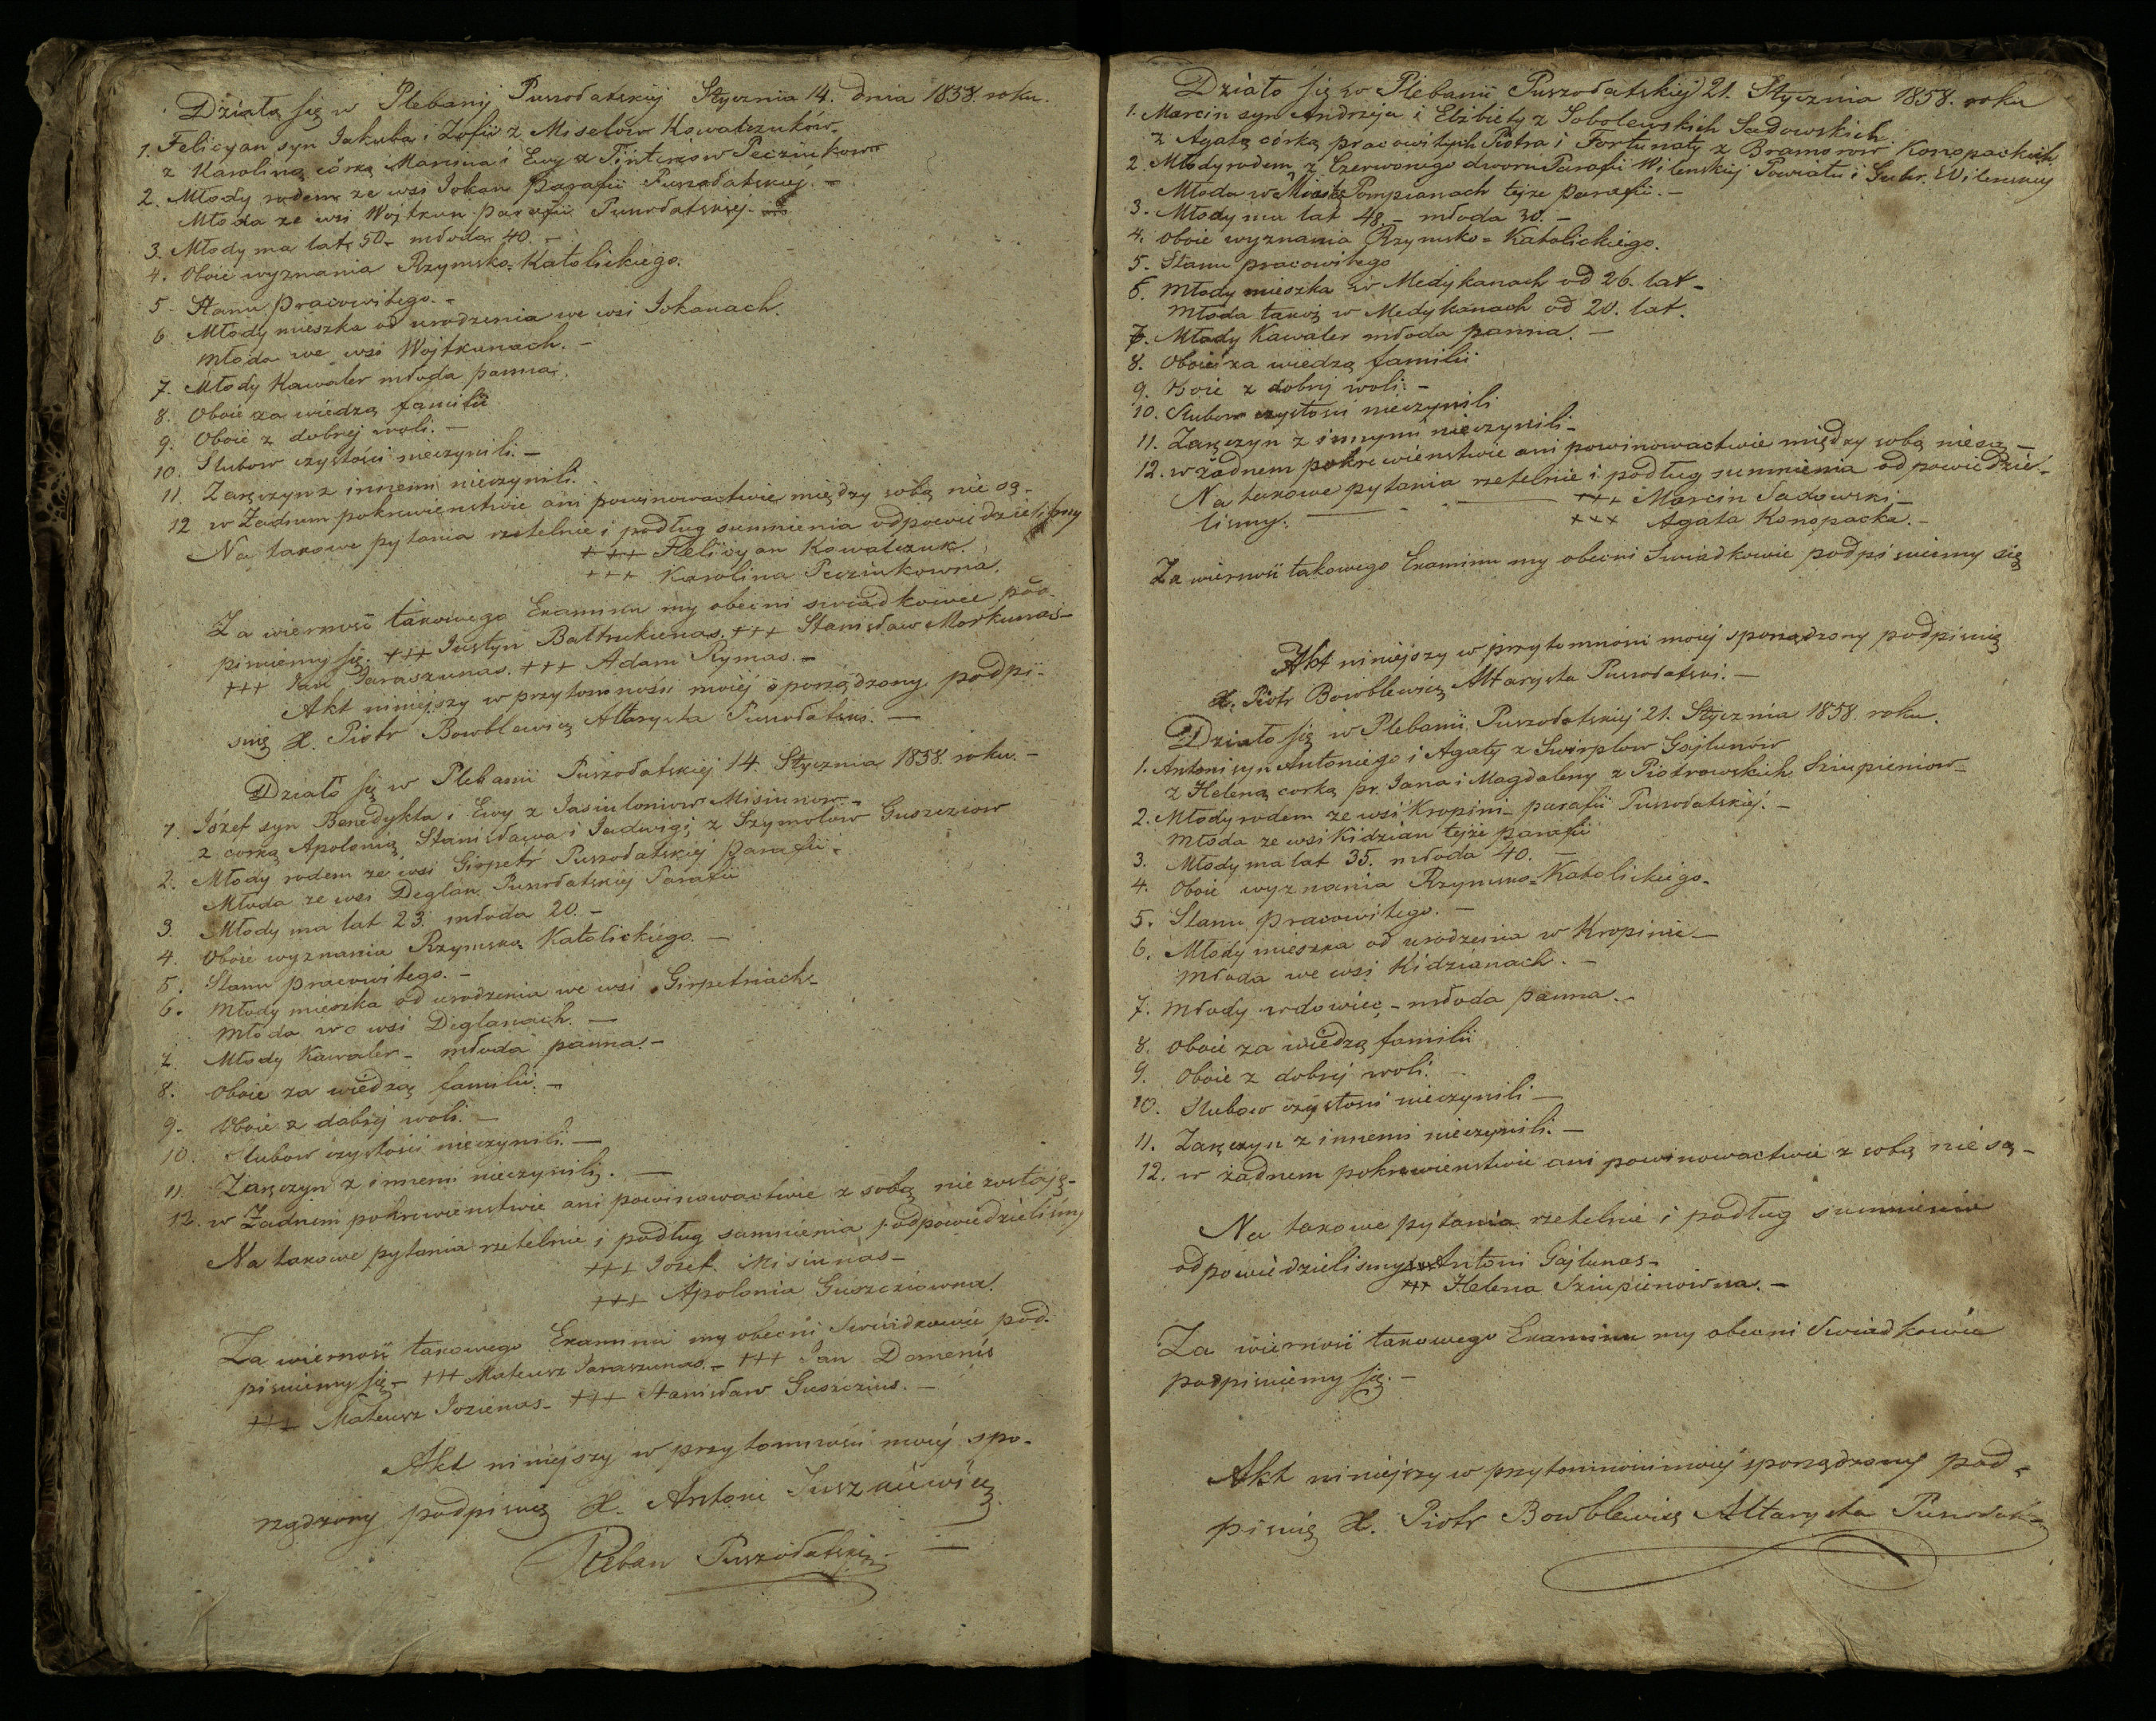 Działo się w Plebanij Puszołatskiej Stycznia 14. dnia 1858. roku.
1. Felicyan syn Jakuba i Zofii z Misełow Kowalczuków
z Karoliną córką Marcina i Ewy z Pinterów Pecziukow
2. Młody rodem ze wsi Jokan parafii Puszołatskiej. -
Młoda ze wsi Wojtkun parafii Puszołatskiej.
3. Młody ma lat 50 - młoda 40. -
4. Oboie wyznania Rzymsko=Katolickiego.
5 Stanu pracowitego. -
6 Młody mieszka od urodzenia we wsi Jokanach.
młoda we wsi Wojtkunach. -
7. Młody Kawaler młoda panna.
8. Oboie za wiedzą familii
9. Oboie z dobrej woli. -
10. Slubow czystosci nieczynili. -
11. Zaręczyn z innemi nieczynili.
12 w Żadnem pokrewienstwie ani powinowactwie między sobą nie są.
Na takowe pytania rzetelnie i podług sumnienia odpowiedzielismy
+++ Felicyan Kowalczuk.
+++ Karolina Pecziukowna.
Za wiernosć takowego Examinu my obecni swiadkowie pod-
pisuiemy się. +++ Justyn Bałtrukienas. +++ Stanisław Morkunas -
+++ Jan Jaraszunas. +++ Adam Rymas. -
Akt niniejszy w przytomnośći moiéj sporządzony podpi-
suię X. Piotr Bowblewicz Altarysta Puszołatski. -
Działo się w Plebanii Puszołatskiej 14. Stycznia 1858. roku. -
1. Józef syn Benedykta i Ewy z Jasiuloniow Misiunow -
z corką Apolonią Stanisława i Jadwigi z Szymołow Guszcziow
2. Młody rodem ze wsi Girpetr Puszołatskiej parafii -
Młoda ze wsi Deglan Puszołatskiej Parafii
3. Młody ma lat 23. młoda 20. -
4. Oboie wyznania Rzymsko=Katolickiego. -
5. Stanu pracowitego. -
6. Młody mieszka od urodzenia we wsi Girpetriach -
Młoda we wsi Deglanach. -
7. Młody Kawaler - młoda panna. -
8. Oboie za wiedzą familii. -
9. Oboie z dobrej woli. -
10. Slubow czystości nieczynili. -
11 Zaręczyn z innemi nieczynili. -
12. w Żadnem pokrewienstwie ani powinowactwie z sobą nie zostają -
Na takowe pytania rzetelnie i podług sumnienia odpowiedzieliśmy
+++ Jozef Misiunas -
+++ Apolonia Guszcziowna.
Za wiernosć takowego Examinu my obecni Swiadkowie pod-
pisuiemy się - +++ Mateusz Jaraszunas. - +++ Jan Domenis
+++ Mateusz Jozienas - +++ Stanisław Guszczius. -
Akt niniejszy w przytomnosci moiéj spo-
rządzony podpisuię X. Antoni Juszkiewicz
Pleban Puszołatski -
Działo się w Plebanii Puszołatskiej 21. Stycznia 1858. roku
1. Marcin syn Andrzeja i Elżbiety z Sobolewskich Sadowskich
z Agatą córką pracowitych Piotra i Fortunaty z Bramorow Konopackich
2. Młody rodem z Czerwonego dworu Parafii Wilenskiej Powiatu i Guber. Wilenskiej
Młoda w Miastę Pompianach tejże parafii. -
3. Młody ma lat 48 - młoda 30. -
4. Oboie wyznania Rzymsko=Katolickiego.
5. Stanu pracowitego
6. młody mieszka w Medykanach od 26. lat -
Młoda takoż w Medykanach od 20. lat.
7. Młody Kawaler młoda panna. -
8. Oboie za wiedzą familii
9. Oboie z dobrej woli. -
10. Slubow czystości nieczynili
11. Zaręczyn z innymi nieczynili -
12. w żadnem pokrewienstwie ani powinowactwie między sobą niesą -
Na takowe pytania rzetelnie i podług sumnienia odpowiedzie-
lismy. - +++ Marcin Sadowski -
+++ Agata Konopacka. -
Za wiernosć takowego Examinu my obecni Swiadkowie podpisuiemy się
Akt niniejszy w przytomności moiéj sporządzony podpisuię
X. Piotr Bowblewicz Altarysta Puszołatski. -
Działo się w Plebanii Puszołatskiej 21. Stycznia 1858. roku.
1. Antoni syn Antoniego i Agaty z Swirplow Gajlunów
z Heleną corką pr. Jana i Magdaleny z Piotrowskich Sziupieniow -
2. Młody rodem ze wsi Kropini - parafii Puszołatskiej. -
Młoda ze wsi Kidzian tejże parafii
3. Młody ma lat 35. młoda 40. -
4. Oboie wyznania Rzymsko=Katolickiego -
5. Stanu pracowitego. -
6. Młody mieszka od urodzenia w Kropinie -
Młoda we wsi Kidzianach. -
7. Młody wdowiec - młoda panna. -
8. oboie za wiedzą familii
9. Oboie z dobrej woli. -
10. Slubow czystosci nieczynili -
11. Zaręczyn z innemi nieczynili. -
12. w żadnem pokrewienstwie ani powinowactwie z sobą nie są -
Na takowe pytania rzetelnie i podług sumnienia
odpowiedzielismy +++ Antoni Gajlunas -
+++ Helena Sziupieniowna. -
Za wiernosć takowego Examinu my obecni Swiadkowie
podpisuiemy się. -
Akt niniejszy w przytomnosci moiéj sporządzony pod-
pisuię X. Piotr Bowblewicz Altarysta Puszołat.